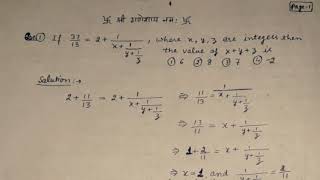 卐 श्री गणेशाय नमः 卐
Page-1
Q. ① If 37/13 = 2 + 1/(x + 1/(y + 1/z)), where x, y, z are integers then
the value of x+y+z is
① 6 ② 8 ③ 7 ④ -2
Solution:-
2 + 11/13 = 2 + 1/(x + 1/(y + 1/z))
⇒ 11/13 = 1/(x + 1/(y + 1/z))
⇒ 13/11 = x + 1/(y + 1/z)
⇒ 1 + 2/11 = x + 1/(y + 1/z)
⇒ x = 1 and 1/(y + 1/z) = 2/11